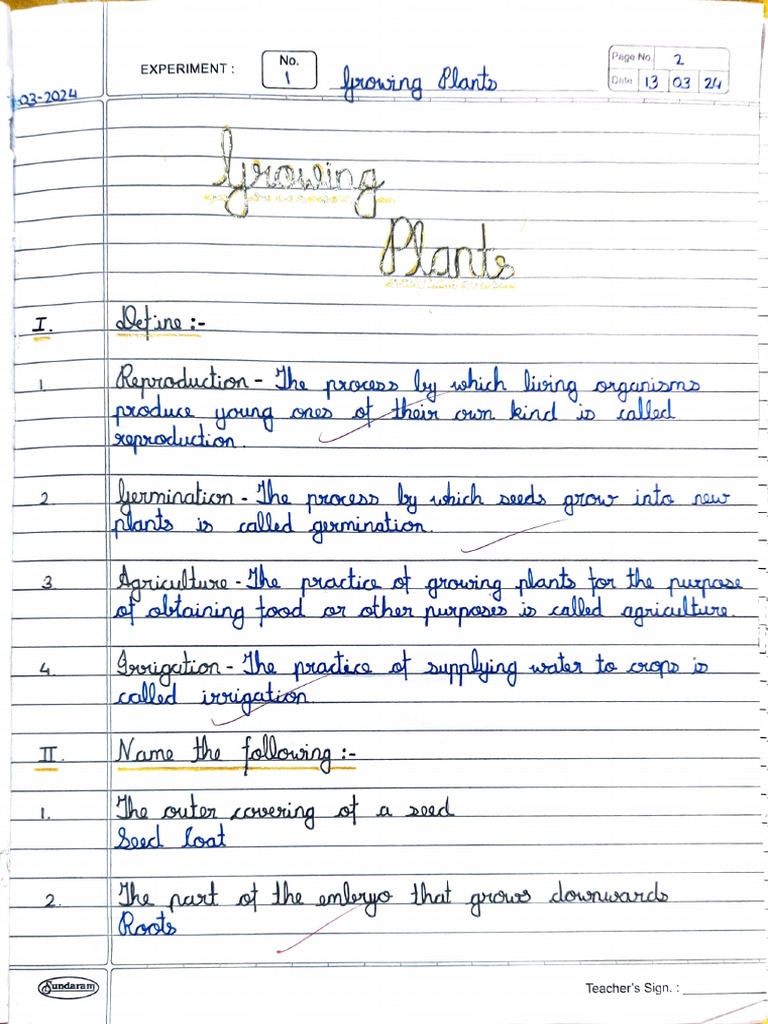 EXPERIMENT : No. 1 Growing Plants Page No. 2
03-2024 Date 13 03 24
Growing
Plants
I. Define :-
1. Reproduction - The process by which living organisms
produce young ones of their own kind is called
reproduction.
2. Germination - The process by which seeds grow into new
plants is called germination.
3. Agriculture - The practice of growing plants for the purpose
of obtaining food or other purposes is called agriculture.
4. Irrigation - The practice of supplying water to crops is
called irrigation.
II. Name the following :-
1. The outer covering of a seed
Seed Coat
2. The part of the embryo that grows downwards
Roots
Sundaram Teacher's Sign. :